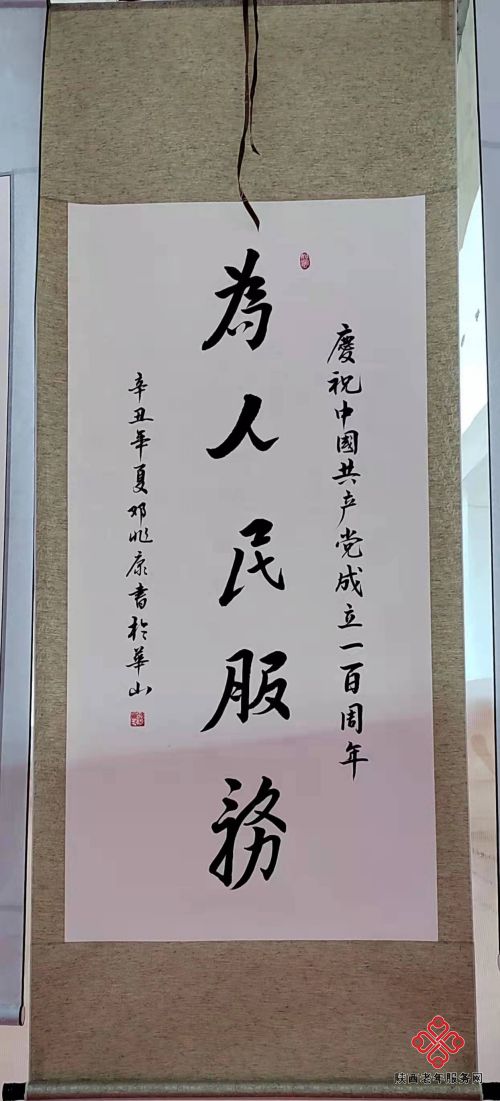 慶祝中國共产党成立一百周年
為人民服務
辛丑年夏邓兆康書於華山
陕西老年服务网